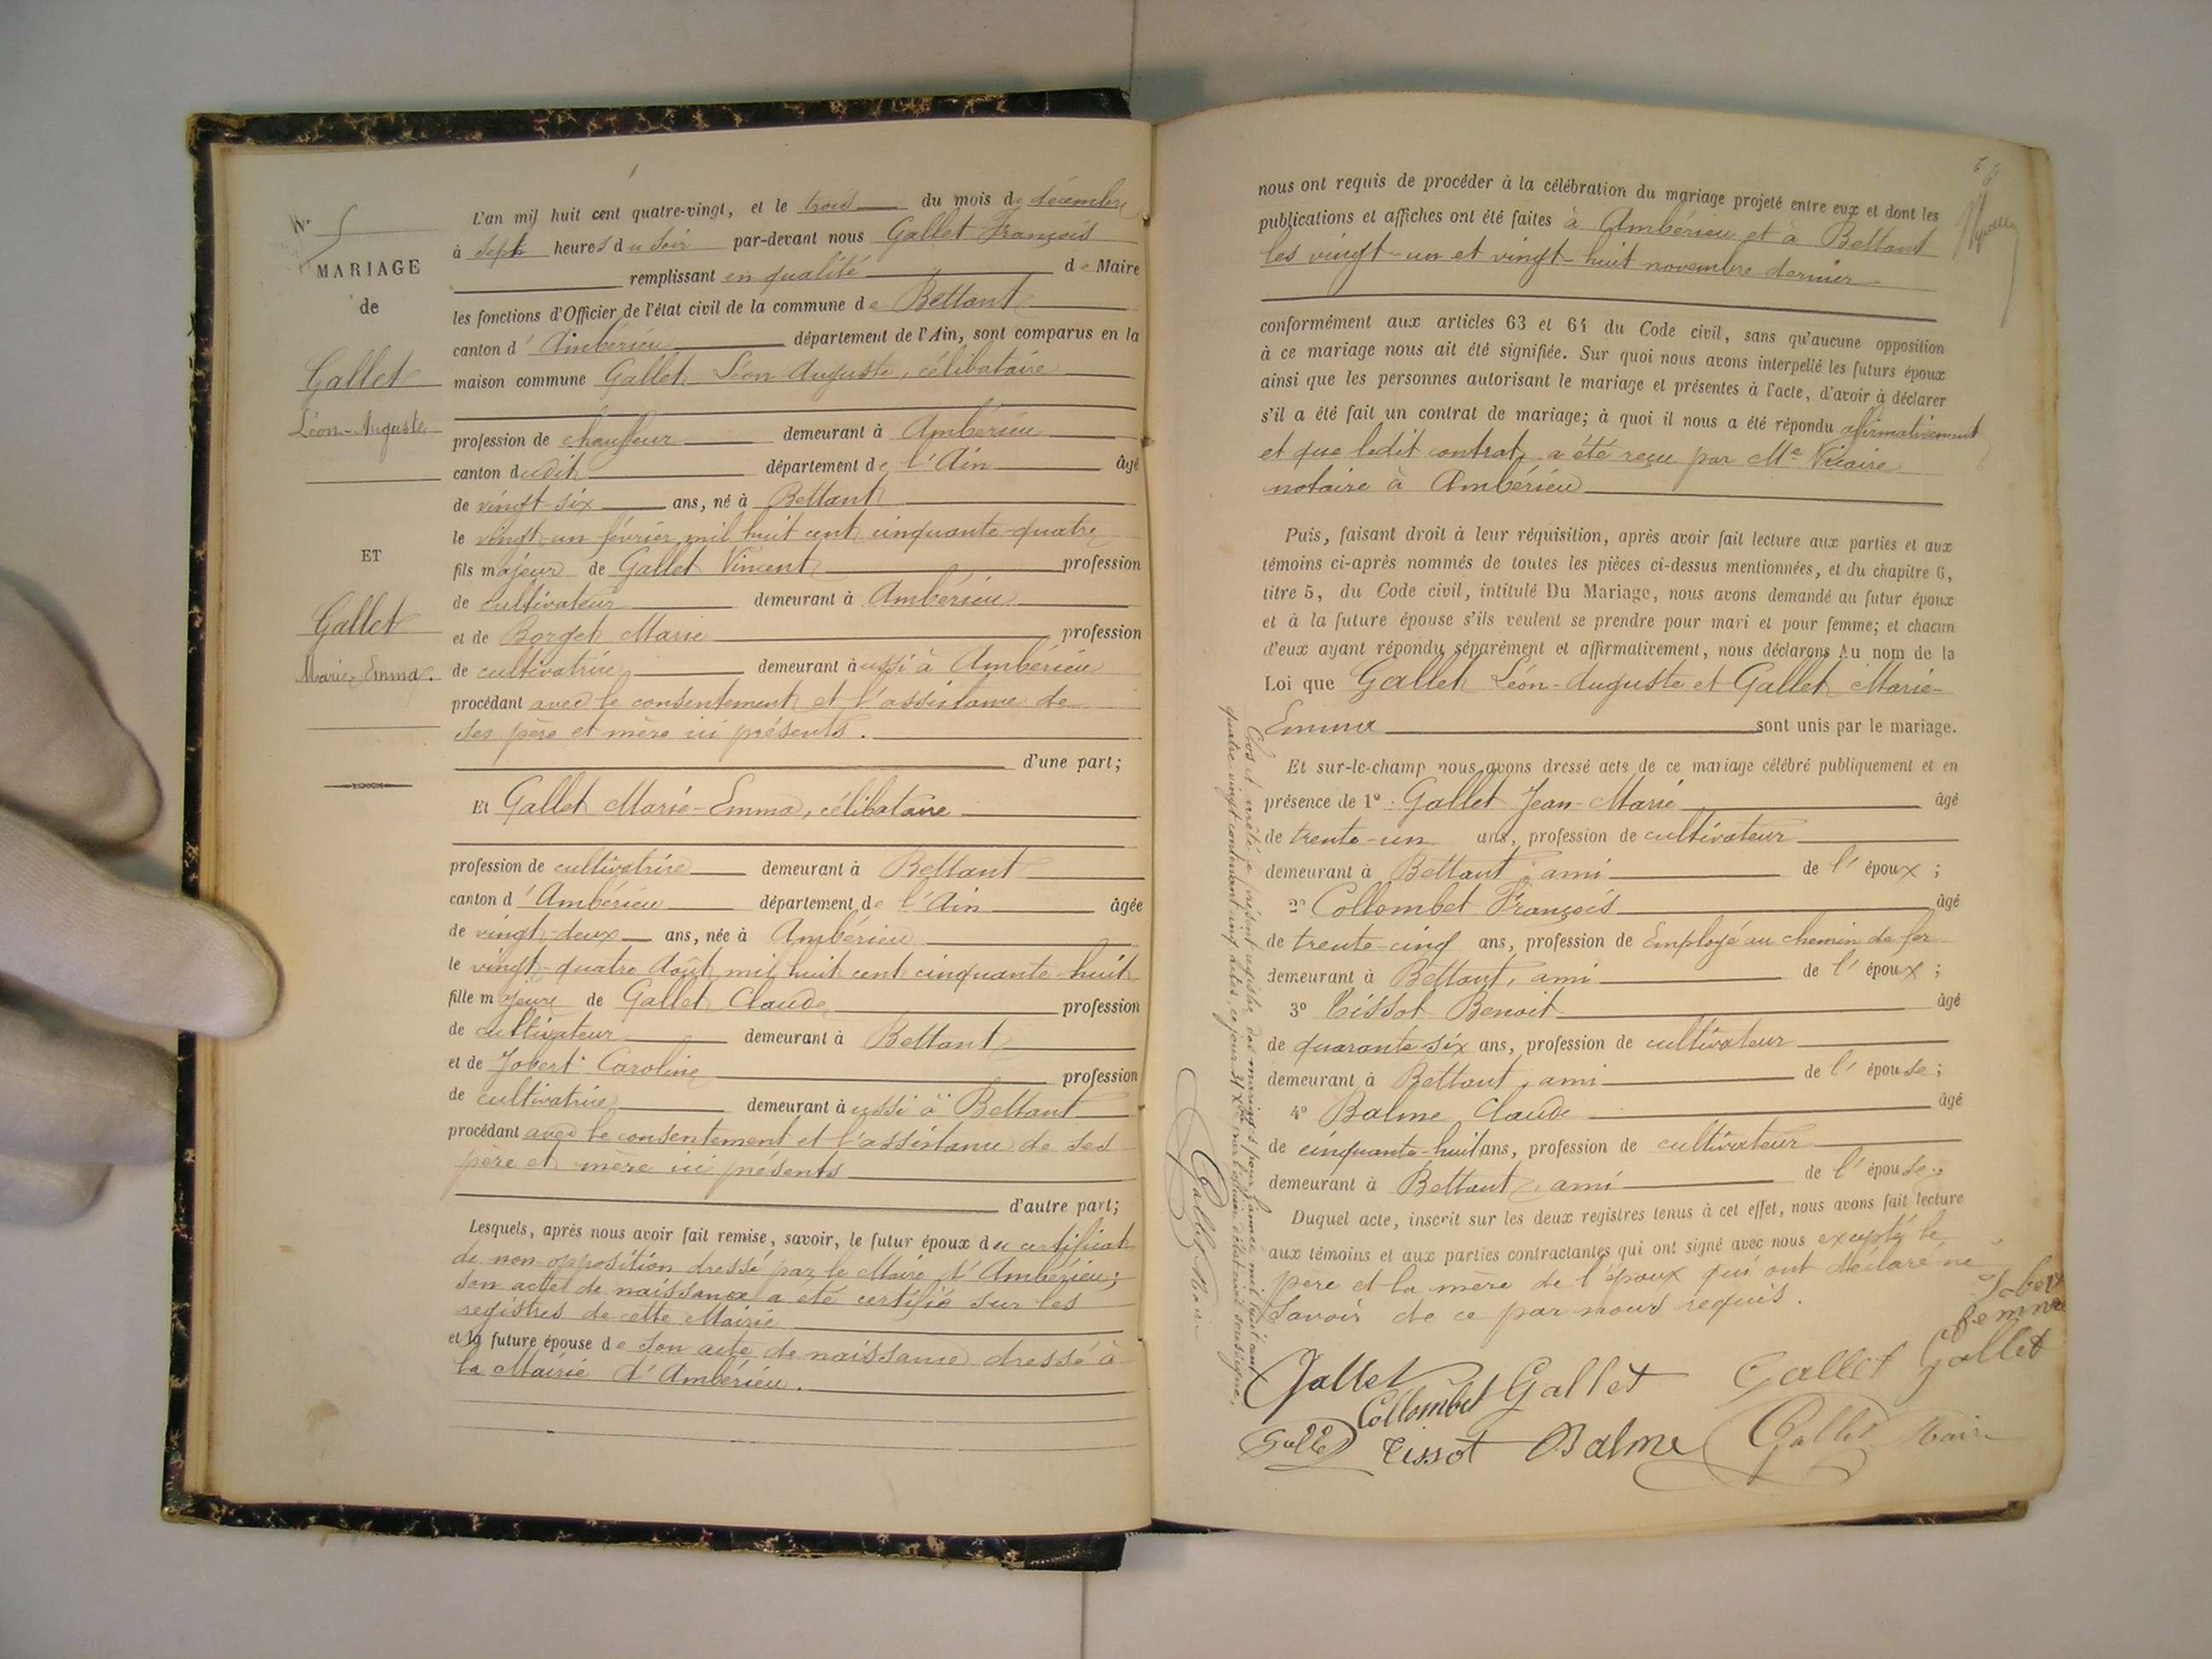 N° 5
MARIAGE
de
Gallet
Léon-Auguste
ET
Gallet
Marie-Emma.
L'an mil huit cent quatre-vingt, et le trois du mois de décembre
à sept heures du soir par-devant nous Gallet François
remplissant en qualité de Maire
les fonctions d'Officier de l'état civil de la commune de Bettant
canton d'Ambérieu département de l'Ain, sont comparus en la
maison commune Gallet Léon-Auguste, célibataire
profession de chauffeur demeurant à Ambérieu
canton dudit département de l'Ain âgé
de vingt-six ans, né à Bettant
le vingt-un février mil huit cent cinquante-quatre
fils majeur de Gallet Vincent profession
de cultivateur demeurant à Ambérieu
et de Borget Marie profession
de cultivatrice demeurant aussi à Ambérieu
procédant avec le consentement et l'assistance de
ses père et mère ici présents.
d'une part;
Et Gallet Marie-Emma, célibataire
profession de cultivatrice demeurant à Bettant
canton d'Ambérieu département de l'Ain âgée
de vingt-deux ans, née à Ambérieu
le vingt-quatre Août mil huit cent cinquante-huit
fille majeure de Gallet Claude profession
de cultivateur demeurant à Bettant
et de Jobert Caroline profession
de cultivatrice demeurant aussi à Bettant
procédant avec le consentement et l'assistance de ses
père et mère ici présents
d'autre part;
Lesquels, après nous avoir fait remise, savoir, le futur époux du certificat
de non opposition dressé par le Maire d'Ambérieu;
son acte de naissance a été certifié sur les
registres de cette Mairie
et la future épouse de son acte de naissance dressé à
la Mairie d'Ambérieu.
nous ont requis de procéder à la célébration du mariage projeté entre eux et dont les
publications et affiches ont été faites à Ambérieu et à Bettant
les vingt-un et vingt-huit novembre dernier
conformément aux articles 63 et 64 du Code civil, sans qu'aucune opposition
à ce mariage nous ait été signifiée. Sur quoi nous avons interpellé les futurs époux
ainsi que les personnes autorisant le mariage et présentes à l'acte, d'avoir à déclarer
s'il a été fait un contrat de mariage; à quoi il nous a été répondu affirmativement
et que ledit contrat a été reçu par Me Vicaire
notaire à Ambérieu
Puis, faisant droit à leur réquisition, après avoir fait lecture aux parties et aux
témoins ci-après nommés de toutes les pièces ci-dessus mentionnées, et du chapitre 6,
titre 5, du Code civil, intitulé Du Mariage, nous avons demandé au futur époux
et à la future épouse s'ils veulent se prendre pour mari et pour femme; et chacun
d'eux ayant répondu séparément et affirmativement, nous déclarons Au nom de la
Loi que Gallet Léon-Auguste et Gallet Marie-
Emma sont unis par le mariage.
Et sur-le-champ nous avons dressé acte de ce mariage célébré publiquement et en
présence de 1° Gallet Jean-Marie âgé
de trente-un ans, profession de cultivateur
demeurant à Bettant, ami de l'époux;
2° Collombet François âgé
de trente-cinq ans, profession de Employé au chemin de fer
demeurant à Bettant, ami de l'époux;
3° Tissot Benoit âgé
de quarante-six ans, profession de cultivateur
demeurant à Bettant, ami de l'épouse;
4° Balme Claude âgé
de cinquante-huit ans, profession de cultivateur
demeurant à Bettant, ami de l'épouse.
Duquel acte, inscrit sur les deux registres tenus à cet effet, nous avons fait lecture
aux témoins et aux parties contractantes qui ont signé avec nous excepté le
père et la mère de l'époux qui ont déclaré ne
savoir de ce par nous requis.
Jobert
femme
Gallet
Gallet Collombet Gallet Gallet
Gallet Tissot Balme Gallet Maire
Clos et arrêté le présent registre des mariages pour l'année mil huit cent
quatre-vingt contenant cinq actes, ce jour 31 Xbre par l'officier d'état civil soussigné.
Gallet Maire